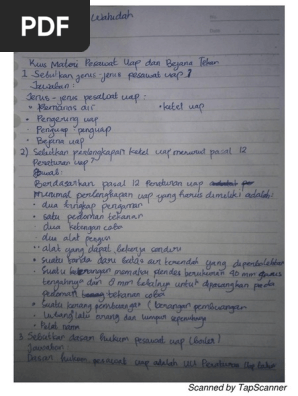 PDF
Wahidah
Kuis Materi Pesawat Uap dan Bejana Tekan
1. Sebutkan jenis-jenis pesawat uap?
Jawaban:
Jenis-jenis pesawat uap:
• Pemanas air • ketel uap
• Pengering uap
Penguap
• Bejana uap
2) Sebutkan perlengkapan ketel uap menurut pasal 12
Peraturan uap?
Jawab:
Berdasarkan pasal 12 Peraturan uap
minimal perlengkapan uap yang harus dimiliki adalah:
• dua tingkap pengaman
• satu pedoman tekanan
dua
dua alat pengisi
• alat yang dapat bekerja sendiri
• Suatu tanda dari batas air terendah yang diperbolehkan
• Suatu memakai plendes berukuran 40 mm
tengahnya dan 8 mm tebalnya untuk dipasangkan pada
pedoman tekanan coba
• Suatu
• Lubang lalu orang dan lumpur secukupnya
• Pelat nama
3. Sebutkan dasar hukum pesawat uap (boiler)
Jawaban:
Dasar hukum pesawat uap adalah
Scanned by TapScanner